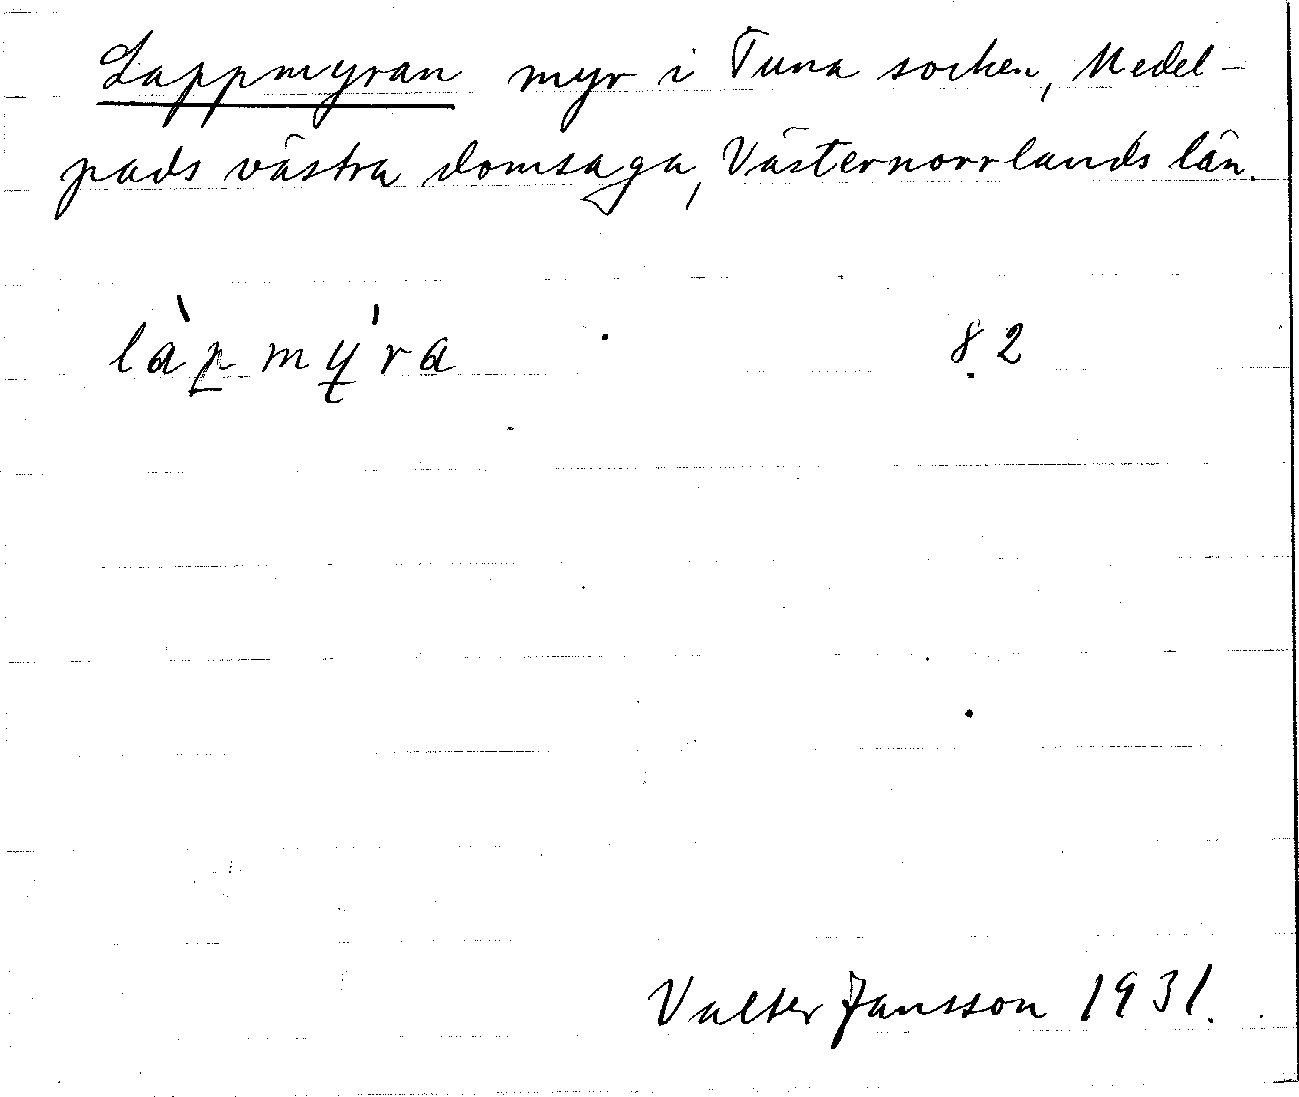 Lappmyran myr i Tuna socken, Medel-
pads västra domsaga, Västernorrlands län.
làp̠mý̵ra 82
Valter Jansson 1931.